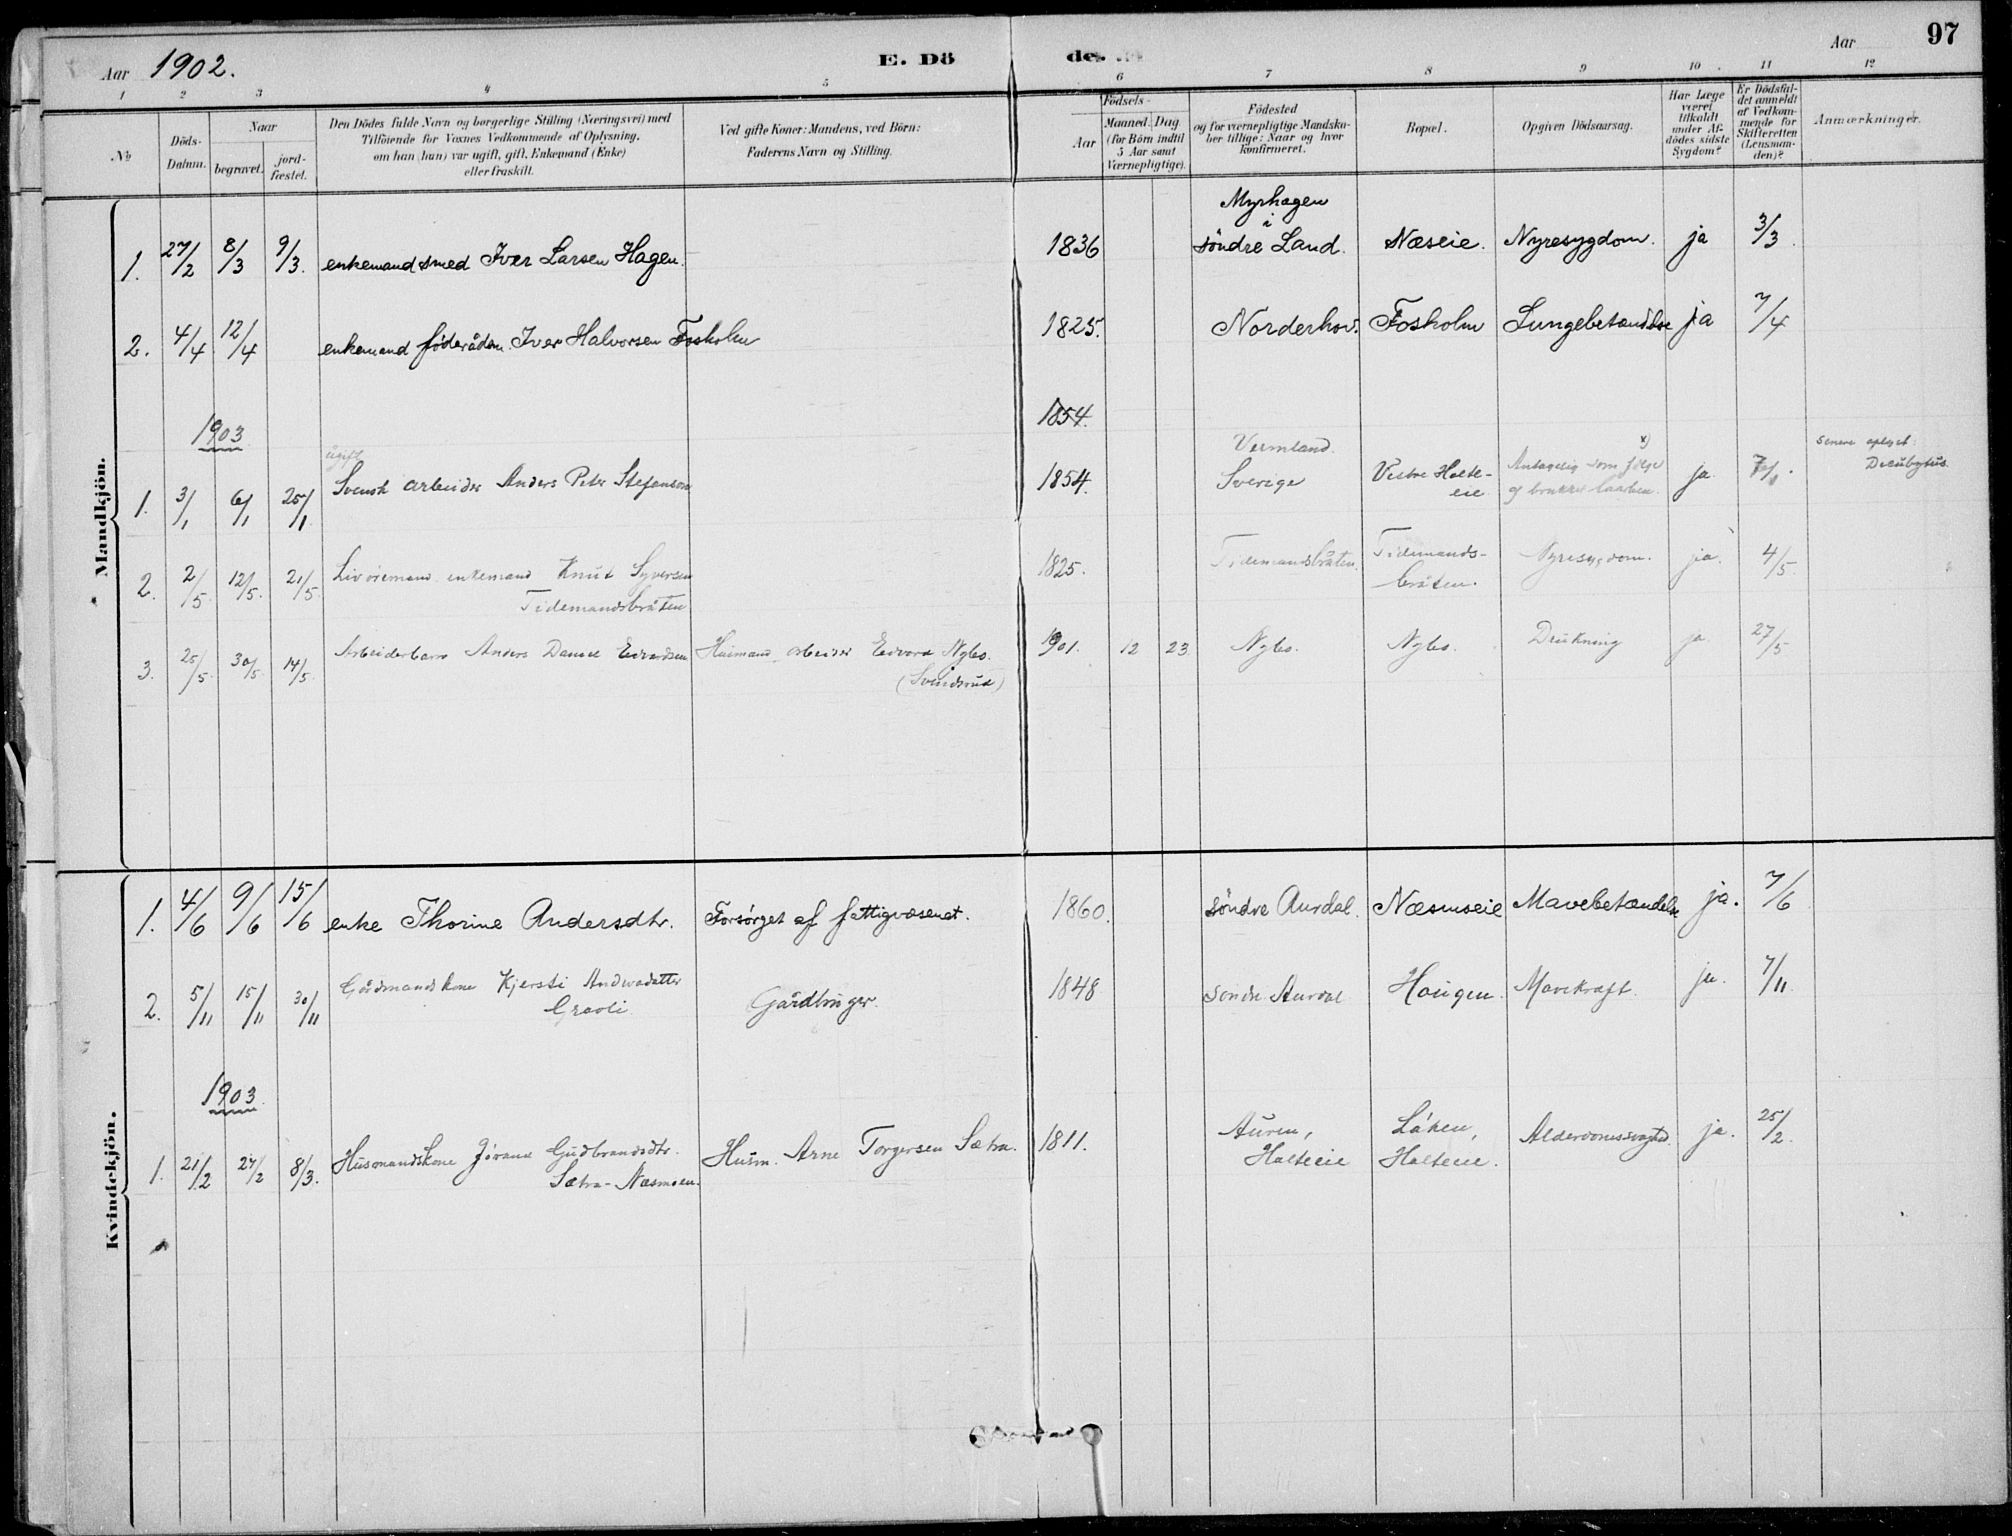 Aar 1902.
E. Döde.
Aar
97
1 2 3 4 5 6 7 8 9 10 11 12
No
Döds-
Datum.
Naar
begravet.
jord-
fæstet.
Den Dödes fulde Navn og borgerlige Stilling (Næringsvei) med
Tilföiende for Voxnes Vedkommende af Oplysning,
om han (hun) var ugift, gift, Enkemand (Enke)
eller fraskilt.
Ved gifte Koner: Mandens, ved Börn:
Faderens Navn og Stilling.
Födsels-
Aar
Maaned. Dag
(for Börn indtil
5 Aar samt
Værnepligtige).
Födested
og for værnepligtige Mandska-
ber tillige: Naar og hvor
konfirmeret.
Bopæl.
Opgiven Dödsaarsag.
Har Læge
været
tilkaldt
under Af-
dödes sidste
Sygdom?
Er Dödsfal-
det anmeldt
af Vedkom-
mende for
Skifteretten
(Lensman-
den)?
Anmærkninger.
Mandkjön.
Myrhagen
i
1. 27/2 8/3 9/3. enkemand smed Iver Larsen Hagen. 1836 söndre Land. Næseie. Nyresygdom. ja 3/3.
2. 4/4 12/4 enkemand föderådm. Iver Halvorsen Fosholm 1825. Norderhov. Fosholm Lungebetændelse ja 7/4
1854.
1903
ugift
Vermland.
x)
senere oplyst:
1. 3/1 6/1 25/1 Svensk arbeider Anders Peter Stefanson 1854. Sverige Vestre Halte- Antagelig som følge ja. 7/1. Decubytus
eie af brukket laarben.
2. 2/5. 12/5. 21/5. Livøremand enkemand Knut Syversen 1825. Tidemandsbråten. Tidemands- Nyresygdom. ja. 4/5.
Tidemandsbråten bråten.
3. 25/5. 30/5. 14/5. Arbeiderbarn Anders Daniel Edvardsen Huusmand, arbeider Edvard Nybo. 1901. 12 23 Nybo. Nybo. Drukning ja. 27/5.
(Svendsrud)
Kvindekjön.
1. 4/6 9/6 15/6 enke Thorine Andersdtr. Forsörget af fattigvæsenet. 1860. söndre Aurdal. Næsmseie Mavebetændelse ja. 7/6
2. 5/11 15/11 30/11 Gårdmandskone Kjersti Andersdatter Gårdbruger. 1848 Søndre Aurdal Haugen. Mavekræft. ja. 7/11.
Gravli
1903
1. 21/2 27/2 8/3. Husmandskone Jörand Gudbrandsdtr. Husm. Arne Torgersen Sætra. 1811. Auren, Låken, Alderdomssvaghed. ja. 25/2.
Sætra-Næsmoen. Halteeie Halteeie.